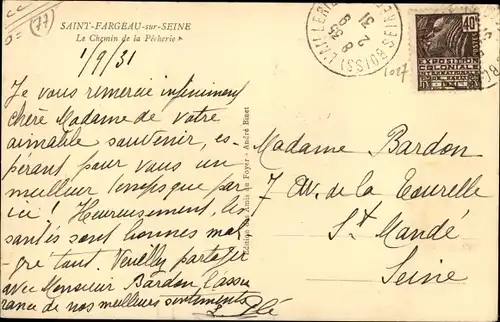 (77)
SAINT-FARGEAU-sur-SEINE
Le Chemin de la Pêcherie
1/9/31
Je vous remercie infiniment
chère Madame de votre
aimable souvenir, es-
pérant pour vous un
meilleur temps que par
ici ! Heureusement, les
santés sont bonnes mal-
gré tout. Veuillez partager
avec Monsieur Bardon l'assu
rance de nos meilleurs sentiments
Edition des Amis du Foyer - André Rinet
40c
EXPOSITION
1027
Madame Bardon
7 Av. de la Tourelle
St Mandé
Seine